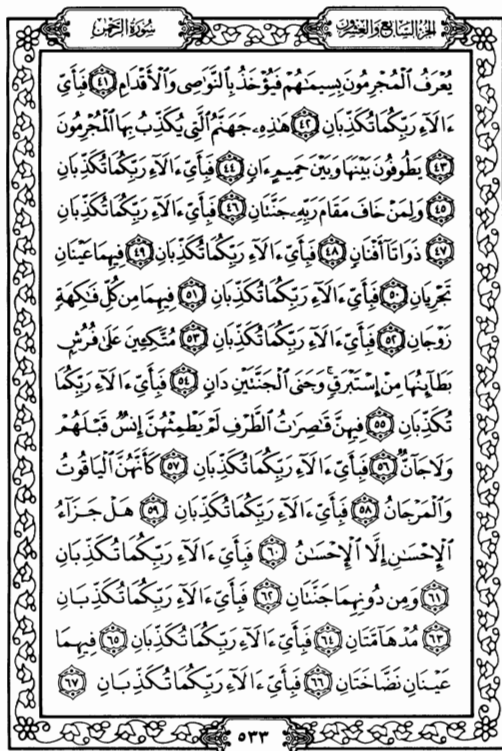 سُورَةُ الرَّحْمٰن
الجُزْءُ السَّابِعُ وَالعِشْرُونَ
يُعْرَفُ ٱلْمُجْرِمُونَ بِسِيمَٰهُمْ فَيُؤْخَذُ بِٱلنَّوَٰصِى وَٱلْأَقْدَامِ ٤١ فَبِأَىِّ
ءَالَآءِ رَبِّكُمَا تُكَذِّبَانِ ٤٢ هَٰذِهِۦ جَهَنَّمُ ٱلَّتِى يُكَذِّبُ بِهَا ٱلْمُجْرِمُونَ
٤٣ يَطُوفُونَ بَيْنَهَا وَبَيْنَ حَمِيمٍ ءَانٍ ٤٤ فَبِأَىِّ ءَالَآءِ رَبِّكُمَا تُكَذِّبَانِ
٤٥ وَلِمَنْ خَافَ مَقَامَ رَبِّهِۦ جَنَّتَانِ ٤٦ فَبِأَىِّ ءَالَآءِ رَبِّكُمَا تُكَذِّبَانِ
٤٧ ذَوَاتَآ أَفْنَانٍ ٤٨ فَبِأَىِّ ءَالَآءِ رَبِّكُمَا تُكَذِّبَانِ ٤٩ فِيهِمَا عَيْنَانِ
تَجْرِيَانِ ٥٠ فَبِأَىِّ ءَالَآءِ رَبِّكُمَا تُكَذِّبَانِ ٥١ فِيهِمَا مِن كُلِّ فَٰكِهَةٍ
زَوْجَانِ ٥٢ فَبِأَىِّ ءَالَآءِ رَبِّكُمَا تُكَذِّبَانِ ٥٣ مُتَّكِـِٔينَ عَلَىٰ فُرُشٍۭ
بَطَآئِنُهَا مِنْ إِسْتَبْرَقٍ ۚ وَجَنَى ٱلْجَنَّتَيْنِ دَانٍ ٥٤ فَبِأَىِّ ءَالَآءِ رَبِّكُمَا
تُكَذِّبَانِ ٥٥ فِيهِنَّ قَٰصِرَٰتُ ٱلطَّرْفِ لَمْ يَطْمِثْهُنَّ إِنسٌ قَبْلَهُمْ
وَلَا جَآنٌّ ٥٦ فَبِأَىِّ ءَالَآءِ رَبِّكُمَا تُكَذِّبَانِ ٥٧ كَأَنَّهُنَّ ٱلْيَاقُوتُ
وَٱلْمَرْجَانُ ٥٨ فَبِأَىِّ ءَالَآءِ رَبِّكُمَا تُكَذِّبَانِ ٥٩ هَلْ جَزَآءُ
ٱلْإِحْسَٰنِ إِلَّا ٱلْإِحْسَٰنُ ٦٠ فَبِأَىِّ ءَالَآءِ رَبِّكُمَا تُكَذِّبَانِ
٦١ وَمِن دُونِهِمَا جَنَّتَانِ ٦٢ فَبِأَىِّ ءَالَآءِ رَبِّكُمَا تُكَذِّبَانِ
٦٣ مُدْهَآمَّتَانِ ٦٤ فَبِأَىِّ ءَالَآءِ رَبِّكُمَا تُكَذِّبَانِ ٦٥ فِيهِمَا
عَيْنَانِ نَضَّاخَتَانِ ٦٦ فَبِأَىِّ ءَالَآءِ رَبِّكُمَا تُكَذِّبَانِ ٦٧
٥٣٣